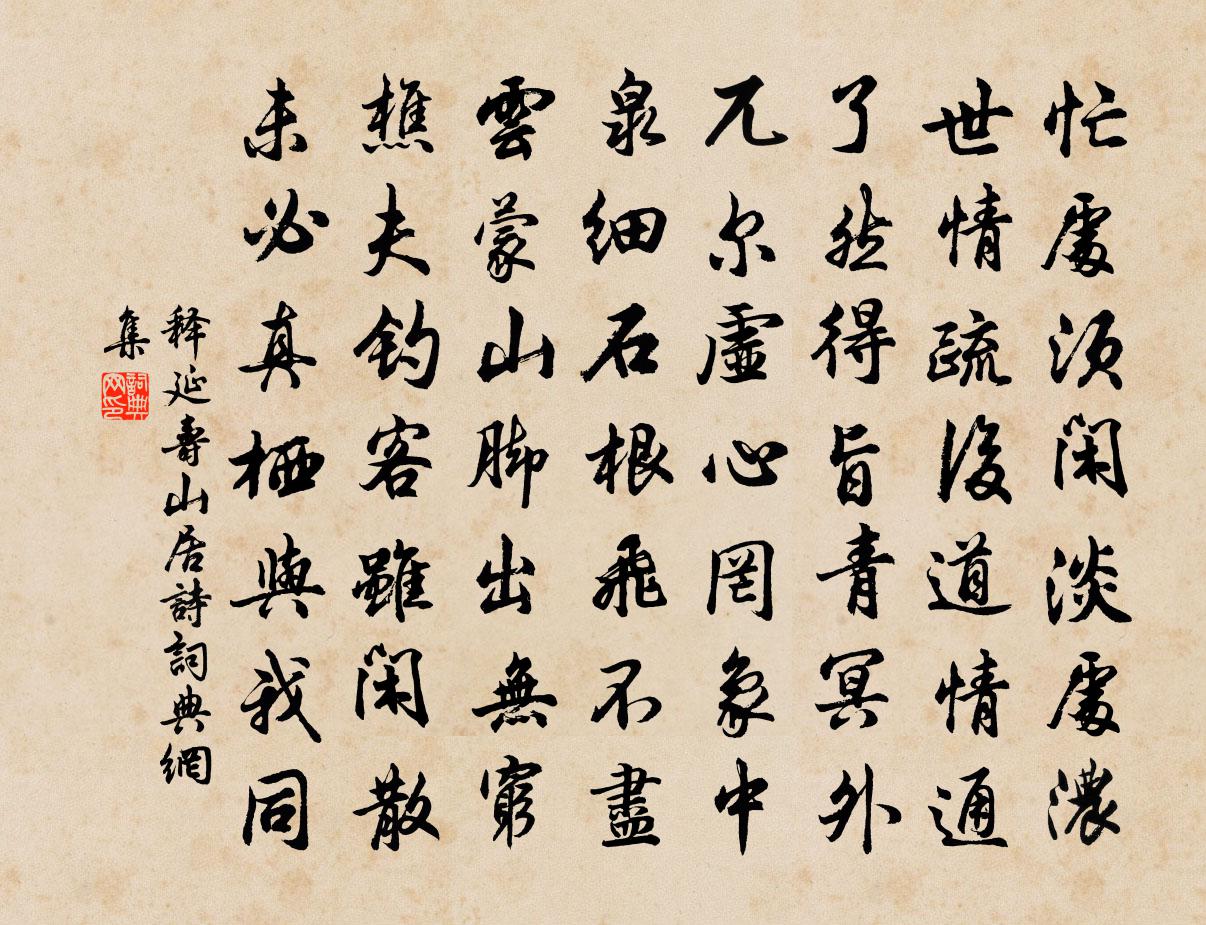 忙處須閑淡處濃
世情疏後道情通
了然得旨青冥外
兀尔虛心罔象中
泉細石根飛不盡
雲蒙山脚出無窮
樵夫釣客雖閑散
未必真栖與我同
释延壽山居詩詞典網
集
詞典網印